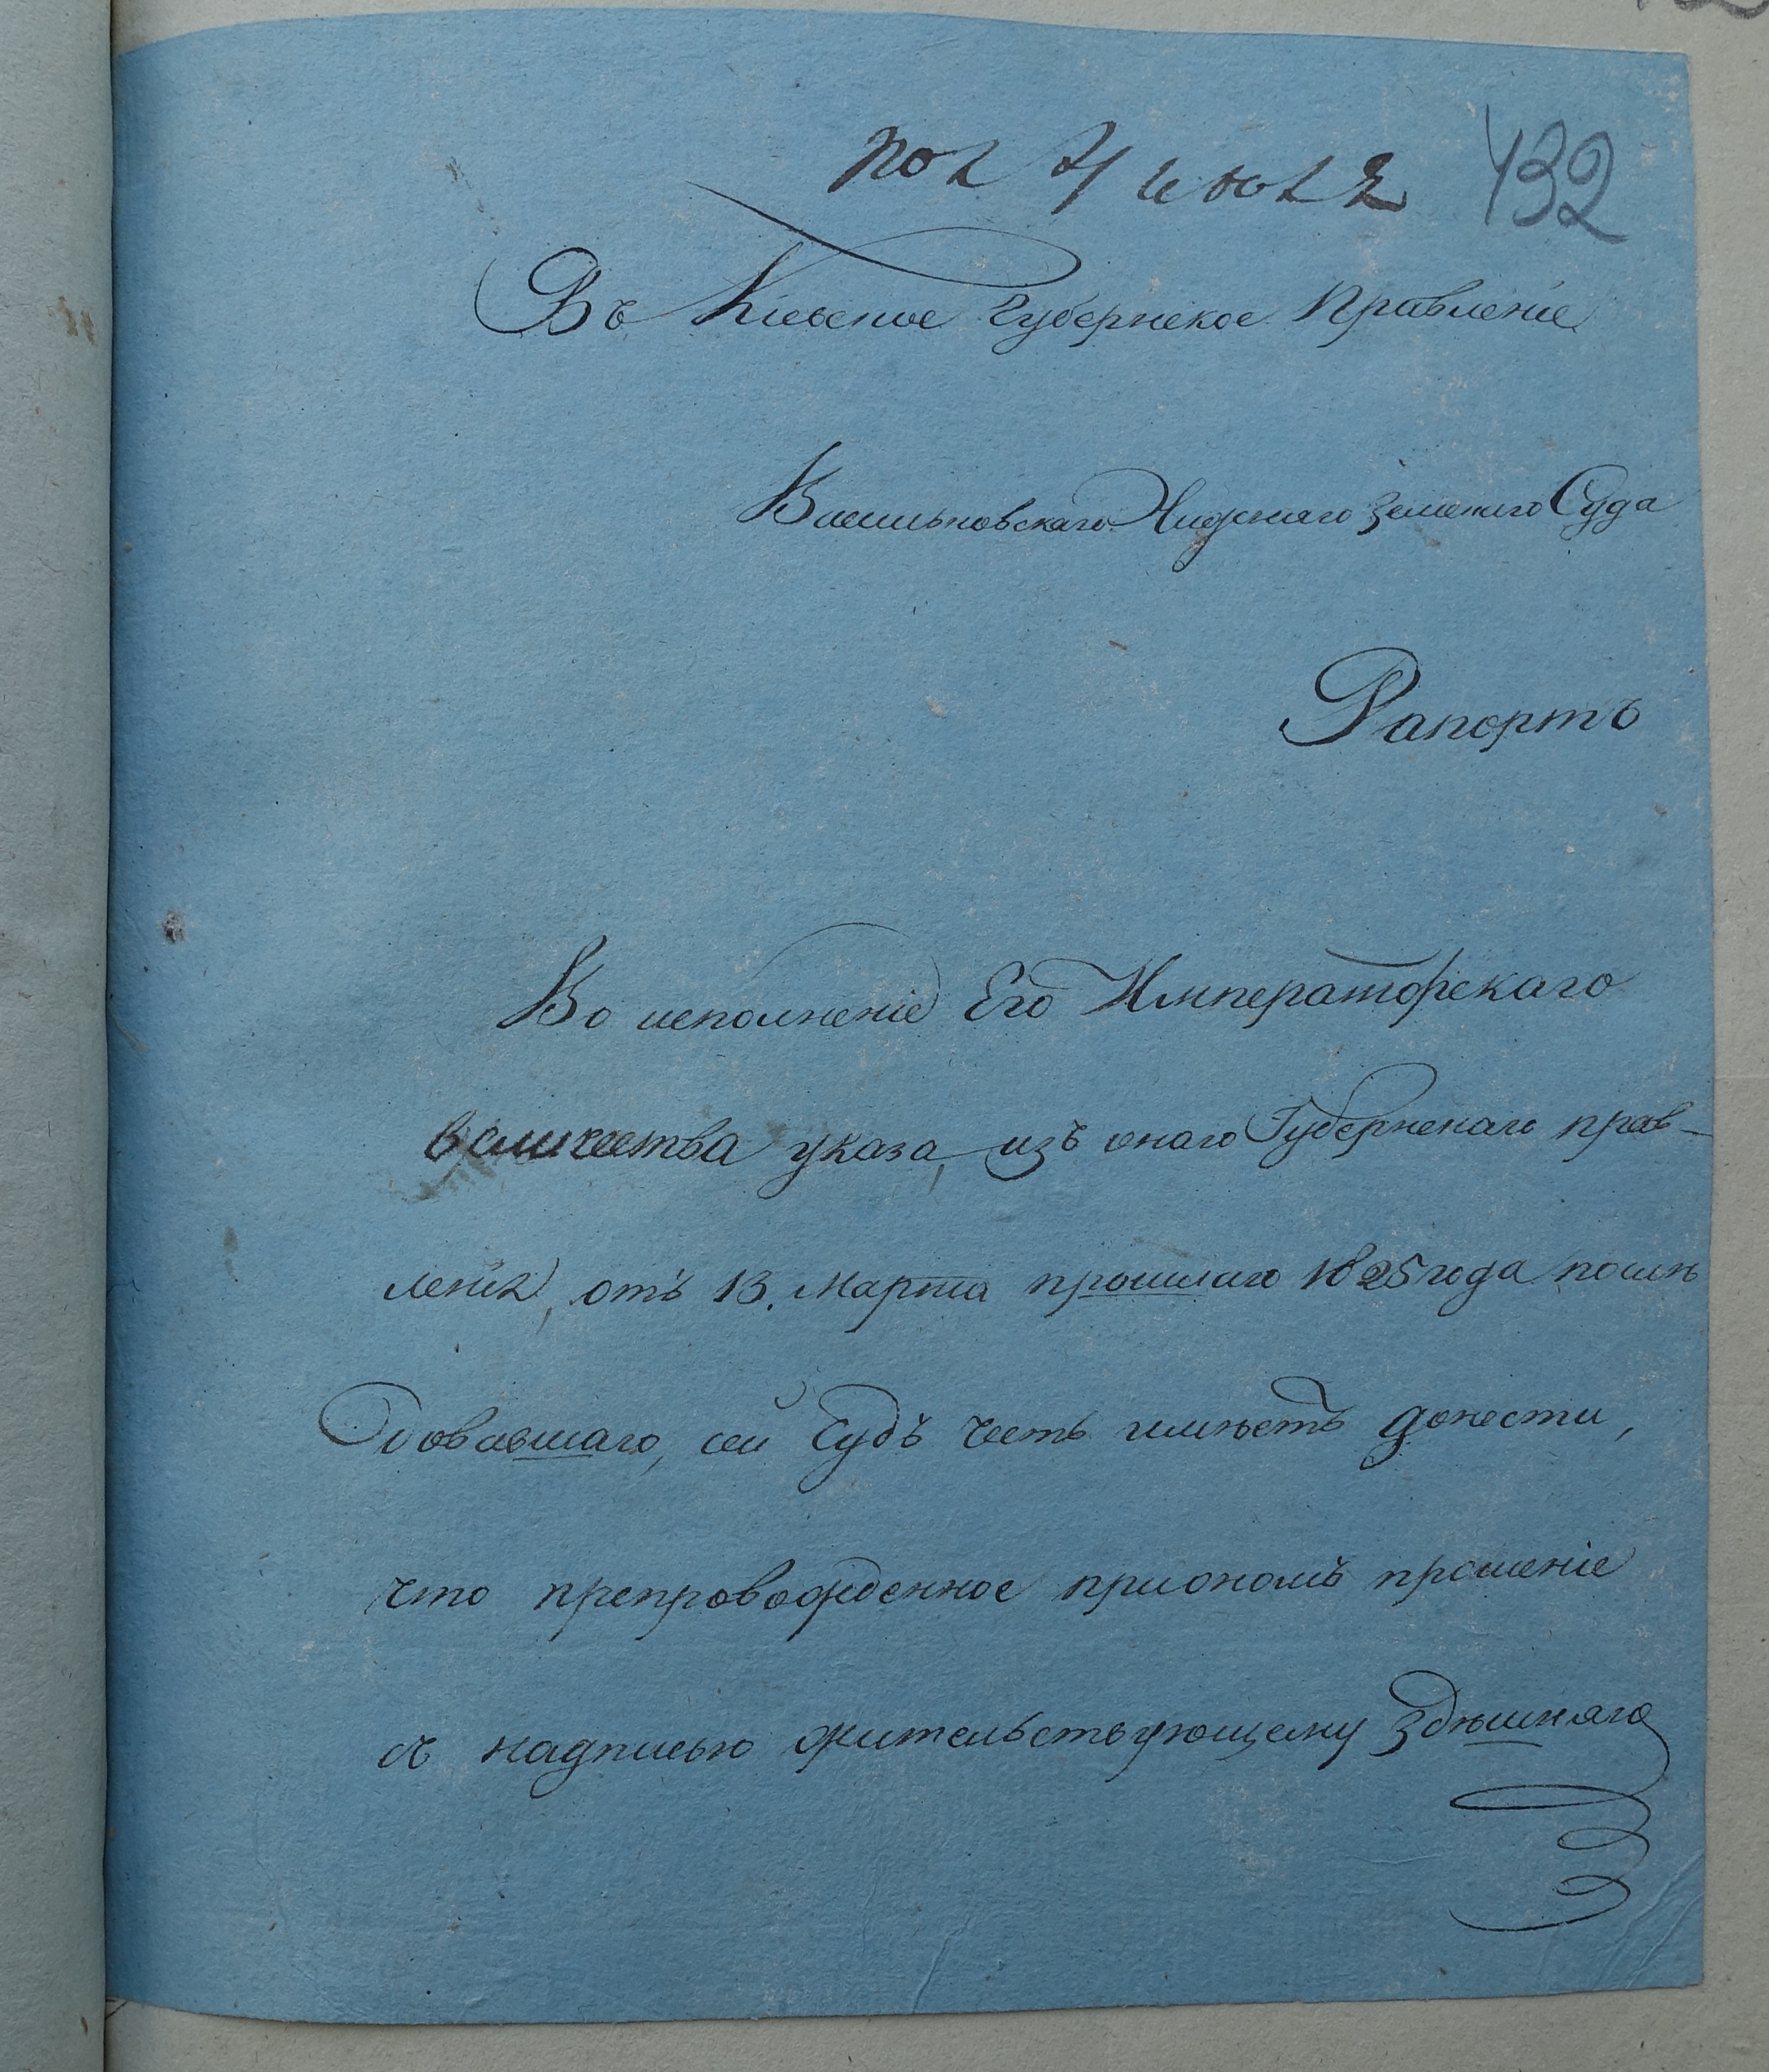 пол 4 июля 432
Въ Киевское Губернское Правленіе
Васильковскаго Нижняго Земскаго Суда
Рапортъ
Во исполненіе Его Императорскаго
величества указа, изъ онаго Губернскаго прав-
ленія, отъ 13. Марта прошлаго 1825 года послѣ
довавшаго, сей Судъ честь имѣетъ донести,
что препровожденное приономъ прошеніе
съ надписью жительствующему здѣшняго